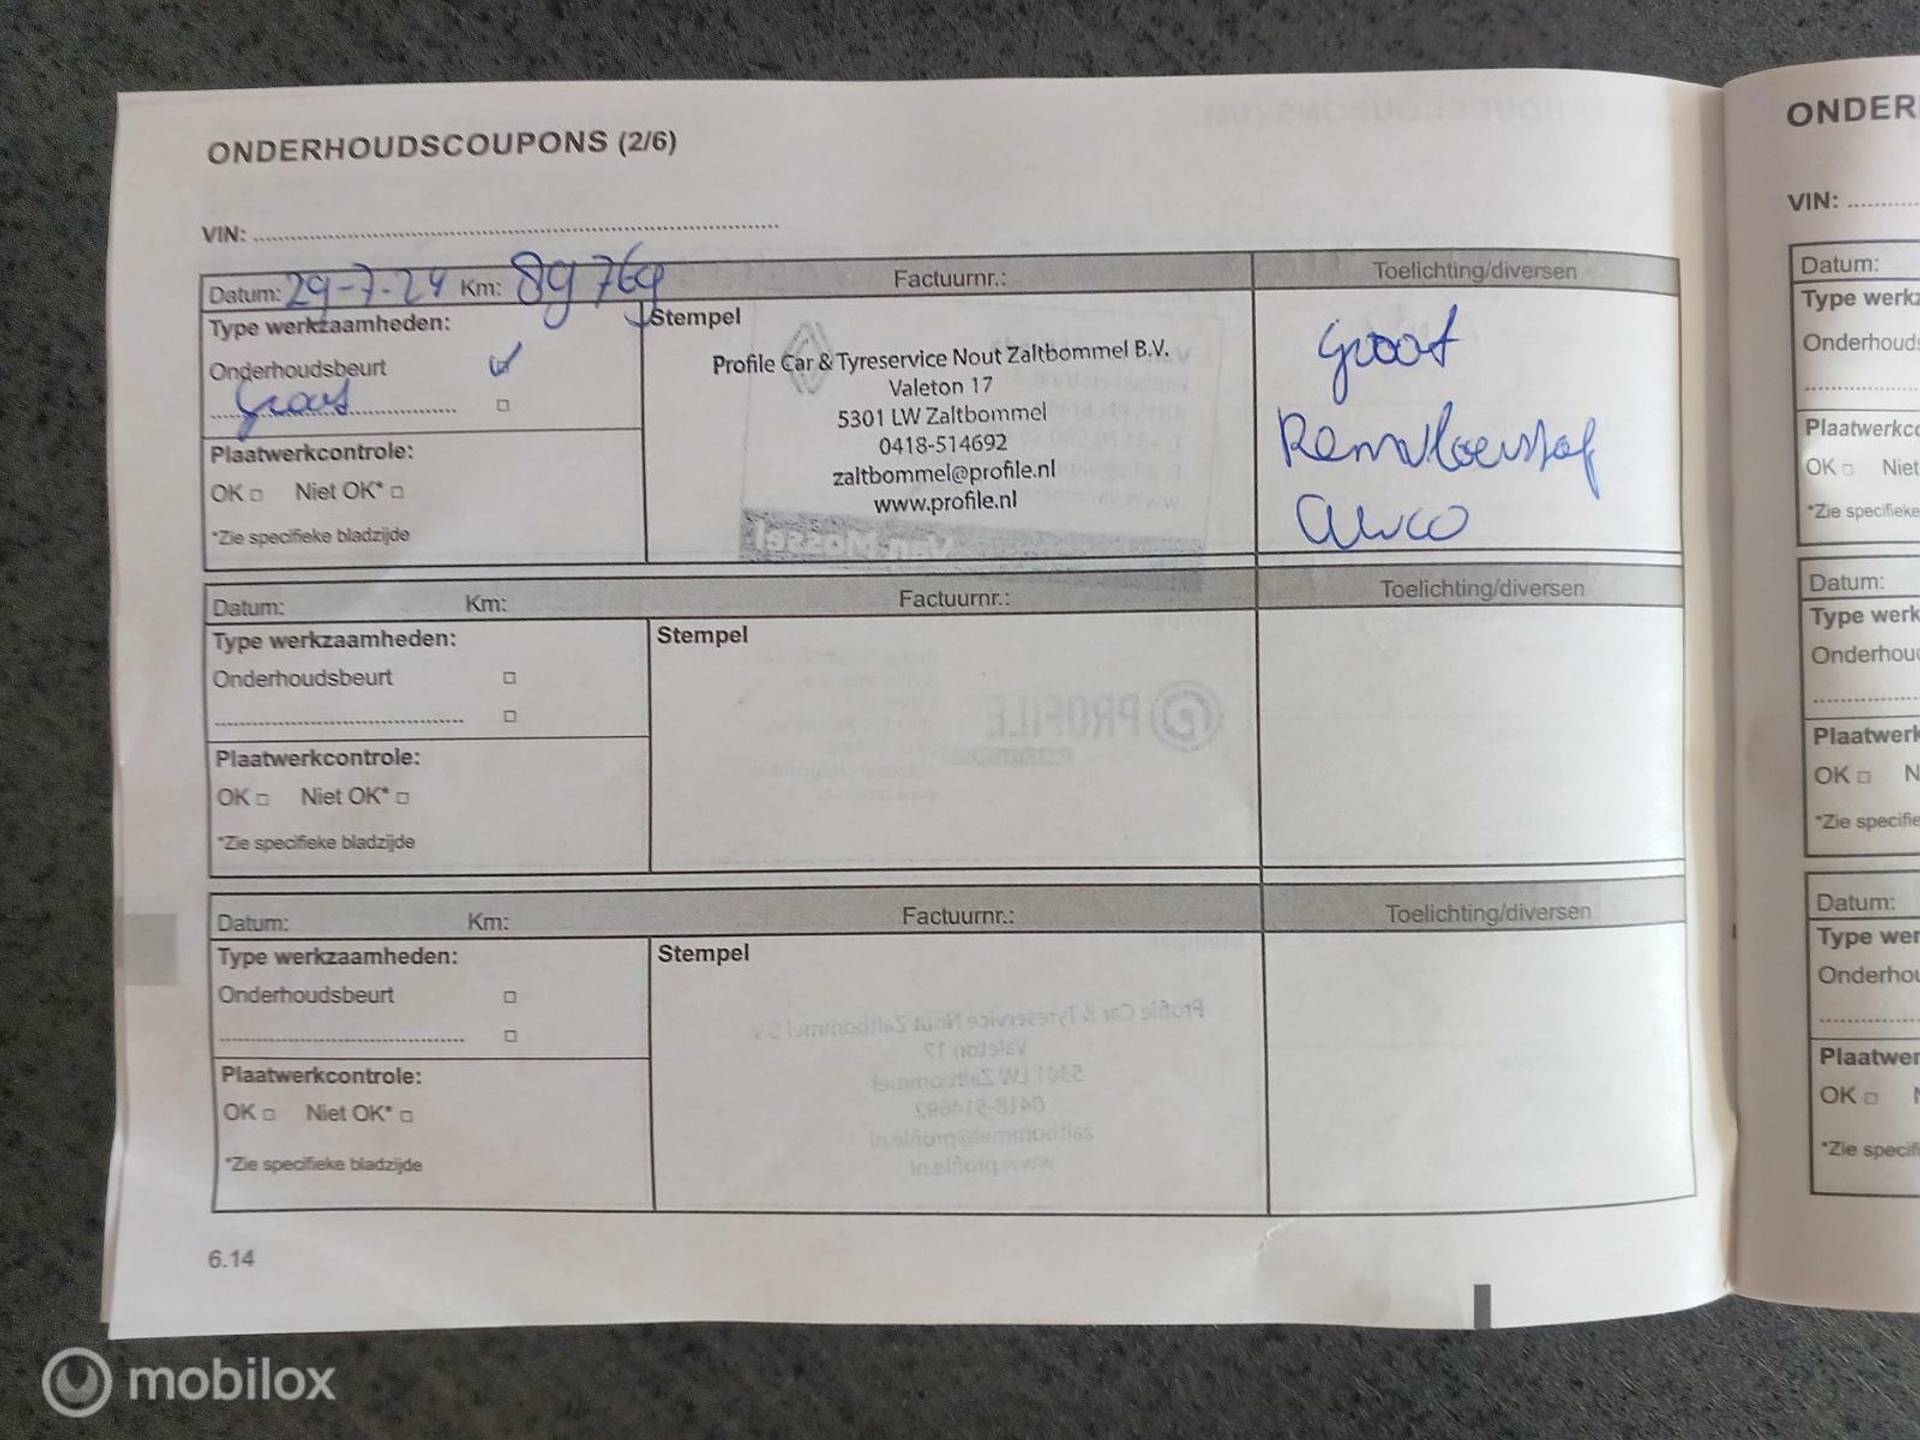 ONDERHOUDSCOUPONS (2/6)
VIN:
Datum: 29-7-24 Km: 89769 Factuurnr.: Toelichting/diversen
Type werkzaamheden:
Stempel
Onderhoudsbeurt
Groot
Plaatwerkcontrole:
OK Niet OK*
*Zie specifieke bladzijde
Profile Car & Tyreservice Nout Zaltbommel B.V.
Valeton 17
5301 LW Zaltbommel
0418-514692
zaltbommel@profile.nl
www.profile.nl
Groot
Remvloeistof
Airco
Datum: Km: Factuurnr.: Toelichting/diversen
Type werkzaamheden:
Stempel
Onderhoudsbeurt
Plaatwerkcontrole:
OK Niet OK*
*Zie specifieke bladzijde
PROFILE
Datum: Km: Factuurnr.: Toelichting/diversen
Type werkzaamheden:
Stempel
Onderhoudsbeurt
Plaatwerkcontrole:
OK Niet OK*
*Zie specifieke bladzijde
Profile Car & Tyreservice Nout Zaltbommel B.V.
Valeton 17
5301 LW Zaltbommel
0418-514692
zaltbommel@profile.nl
www.profile.nl
6.14
ONDER
VIN:
Datum:
Type werkz
Onderhouds
Plaatwerkco
OK Niet
*Zie specifieke
Datum:
Type werk
Onderhoud
Plaatwerk
OK N
*Zie specifie
Datum:
Type wer
Onderhou
Plaatwer
OK
*Zie specifi
mobilox